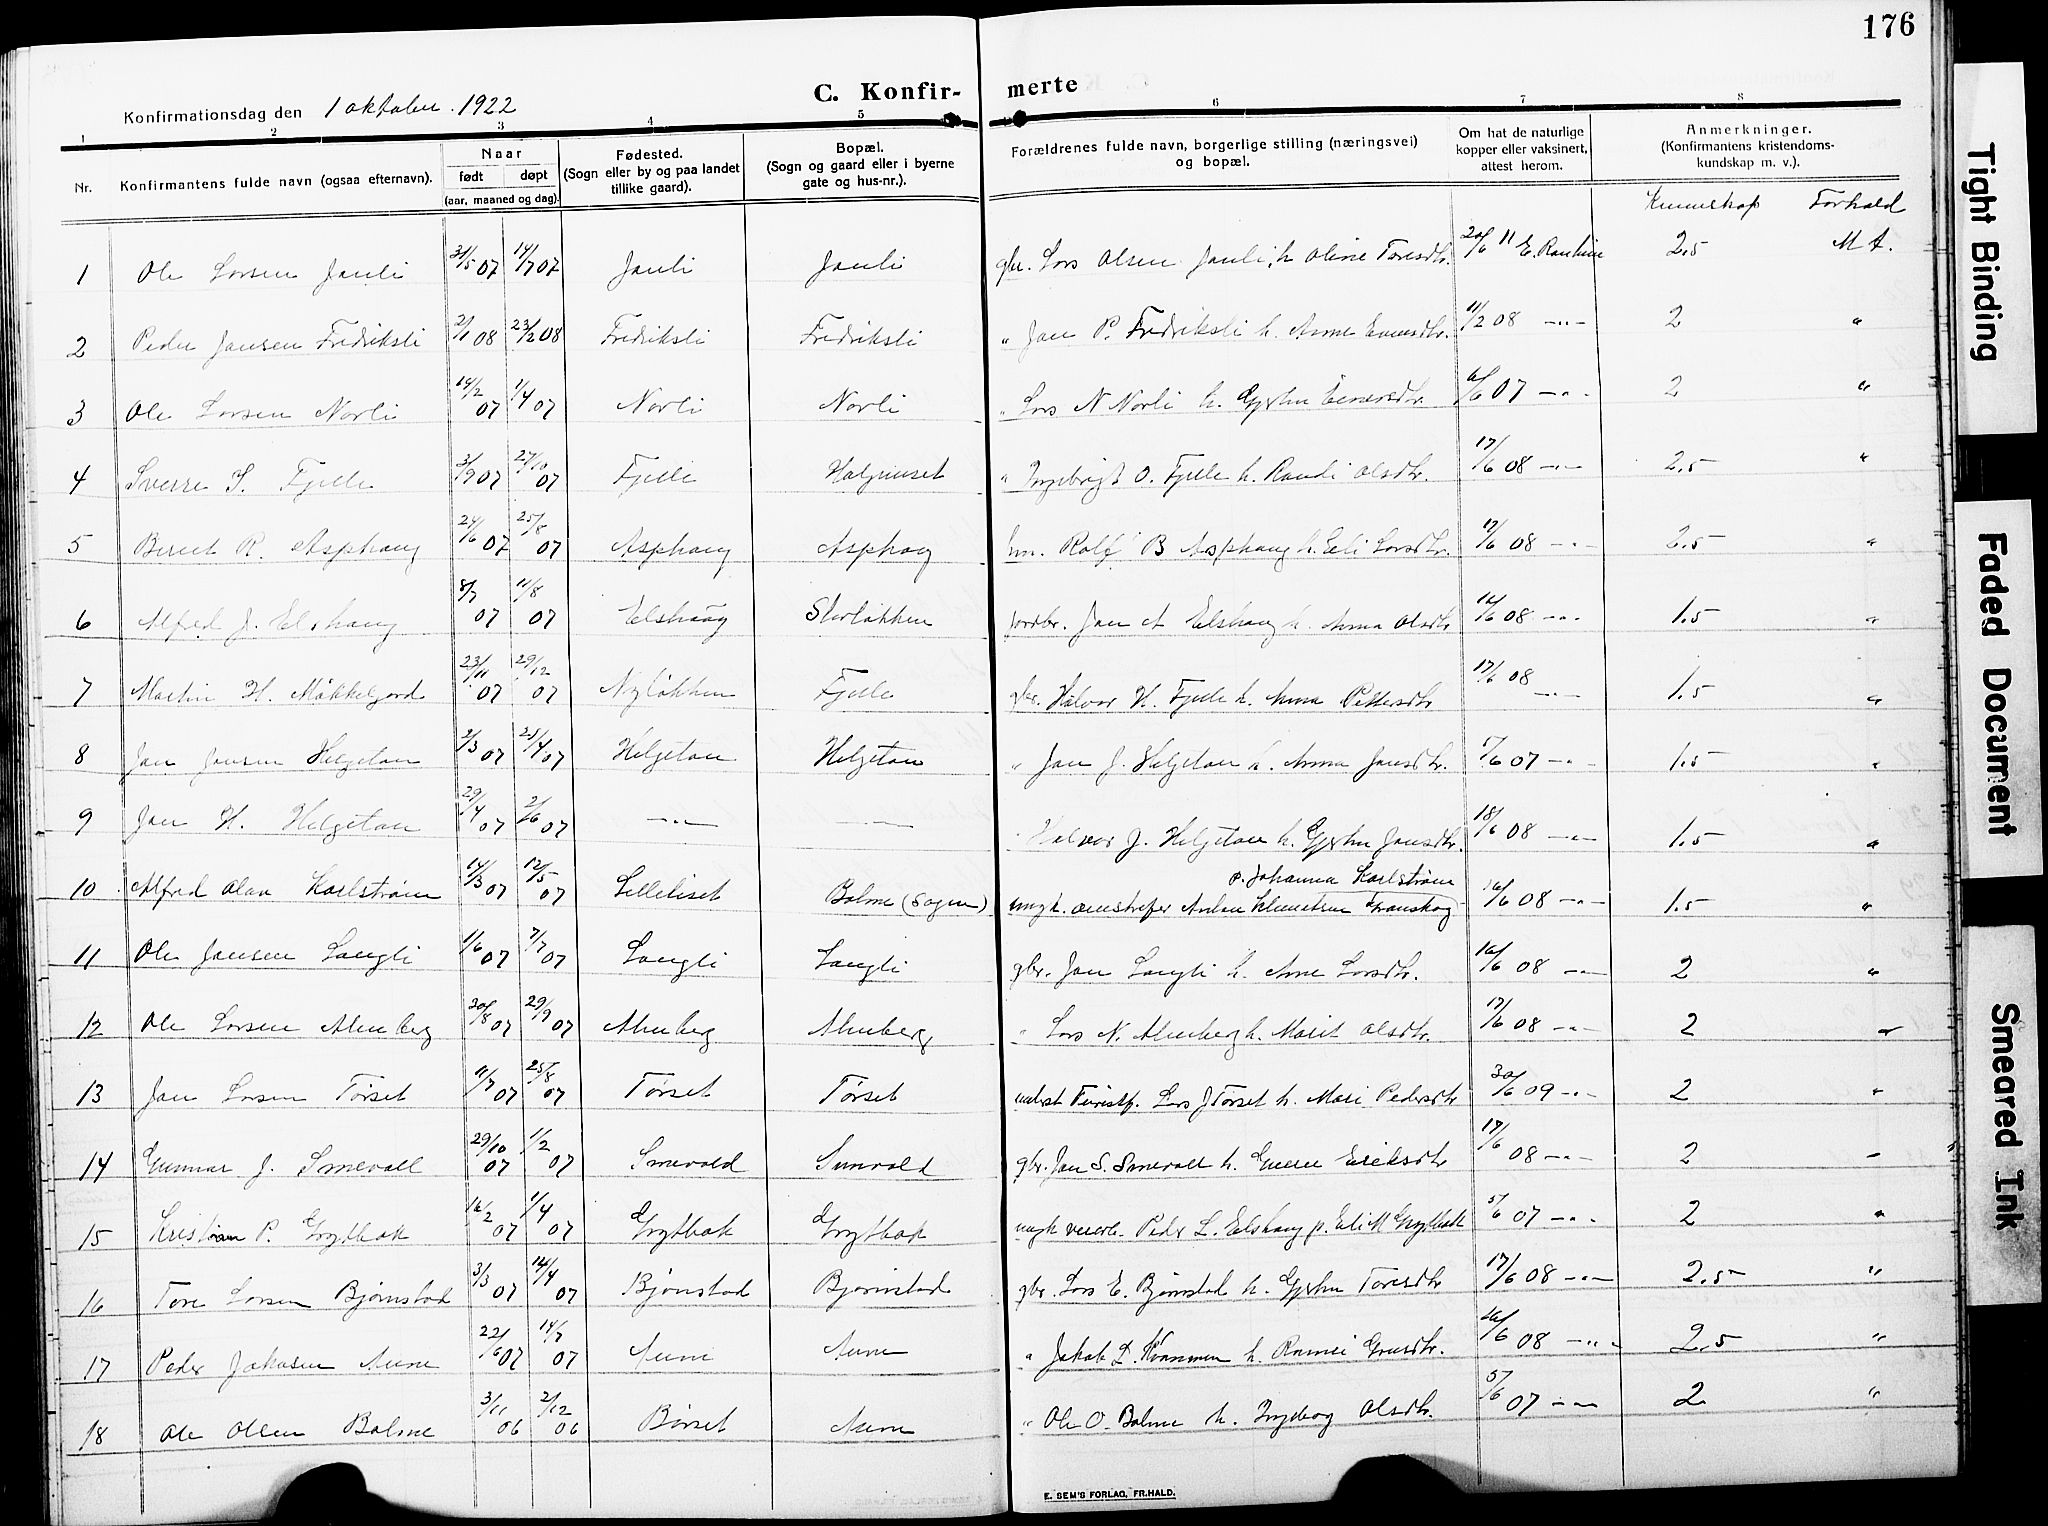 176
C. Konfir- merte
Konfirmationsdag den 1 oktober 1922
1 2 3 4 5 6 7 8
Nr. Konfirmantens fulde navn (ogsaa efternavn). Naar født døpt (aar, maaned og dag). Fødested. (Sogn eller by og paa landet tillike gaard). Bopæl. (Sogn og gaard eller i byerne gate og hus-nr.). Forældrenes fulde navn, borgerlige stilling (næringsvei) og bopæl. Om hat de naturlige kopper eller vaksinert, attest herom. Anmerkninger. (Konfirmantens kristendomskundskap m. v.).
Kunnskap Forhold
1 Ole Larsen Jauli 31/5 07 14/7 07 Jauli Jauli gbr. Lars Olsen Jauli h. Oline Toresdtr. 20/6 11 2.5 M t.
2 Peder Jansen Fredriksli 2/1 08 23/2 08 Fredriksli Fredriksli " Jan P. Fredriksli h. Anne 11/2 08 -"- 2 "
3 Ole Larsen Norli 14/2 07 1/4 07 Norli Norli " Lars N Norli h. Gjertru Einarsdtr. 6/6 07 -"- 2 "
4 Sverre I. Fjelle 3/9 07 27/10 07 Fjelle Halgunset " Ingebrigt O. Fjelle h. Randi Olsdtr. 17/6 08 -"- 2.5 "
5 Beret R. Asphaug 24/6 07 25/8 07 Asphaug Asphaug Rolf B Asphaug h. Eli Larsdtr. 17/6 08 -"- 2.5 "
6 Alfred J. Elshaug 8/7 07 11/8 07 Elshaug Storløkken jordbr. Jan A Elshaug h. Anna Olsdtr 16/6 08 -"- 1.5 "
7 Martin H. Møkkelgjord 23/11 07 29/12 07 Nyløkken Fjelle gbr. Halvor H. Fjelle h. Anna Pettersdtr 17/6 08 -"- 1.5 "
8 Jan Jansen Helgetun 2/3 07 21/4 07 Helgetun Helgetun " Jan J. Helgetun h. Anna Jansdtr. 5/6 07 -"- 1.5 "
9 Jan H. Helgetun 29/4 07 2/6 07 -"- Halvor J. Helgetun h. Gjertru Jansdtr. 18/6 08 -"- 1.5 "
p. Johanna Karlstrøm
10 Alfred Olav Karlstrøm 14/3 07 12/5 07 Lilleliset Balme (Sogn) ungk. Anton Klemetsen Granskog 16/6 08 -"- 1.5 "
11 Ole Jansen Langli 1/6 07 7/7 07 Langli Langli gbr. Jan Langli h. Anne Larsdtr. 16/6 08 -"- 2 "
12 Ole Larsen Almberg 30/8 07 29/9 07 Almberg Almberg " Lars N. Almberg h. Marit Olsdtr. 17/6 08 -"- 2 "
13 Jan Larsen Tørset 11/7 07 25/8 07 Tørset Tørset Lars J Tørset h. Mari Pedersdtr 30/6 09 -"- 2 "
14 Gunnar J. Smevoll 29/10 07 1/2 07 Smevold Smevold gbr. Jan S. Smevoll h. Guru Eriksdtr 17/6 08 -"- 2 "
15 Kristian P. Grytbak 16/2 07 1/4 07 Grytbak Grytbak ungk Peder L. Elshaug p. Eli M Grytbak 5/6 07 -"- 2 "
16 Tore Larsen Bjørnstad 3/3 07 14/4 07 Bjørnstad Bjørnstad gbr. Lars E. Bjørnstad h. Gjertru Toresdtr 17/6 08 -"- 2.5 "
17 Peder Jakobsen Aune 22/6 07 14/7 07 Aune Aune " Jakob D. Kvammen h. 16/6 08 -"- 2.5 "
18 Ole Olsen Balme 3/11 06 2/12 06 Børset Aune " Ole O. Balme h. Ingeborg Olsdtr. 5/6 07 -"- 2 "
E. SEM'S FORLAG, FR.HALD.
Tight Binding
Faded Document
Smeared Ink